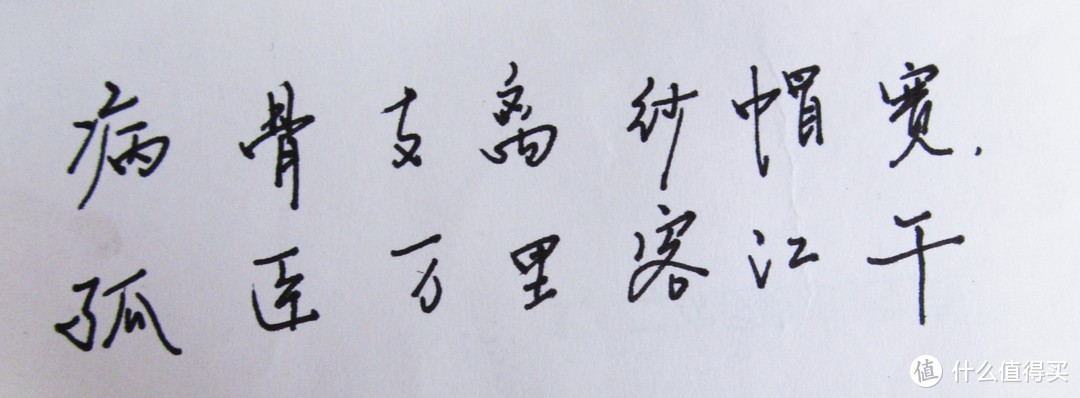 病骨支离纱帽宽.
孤臣万里客江干
值 什么值得买